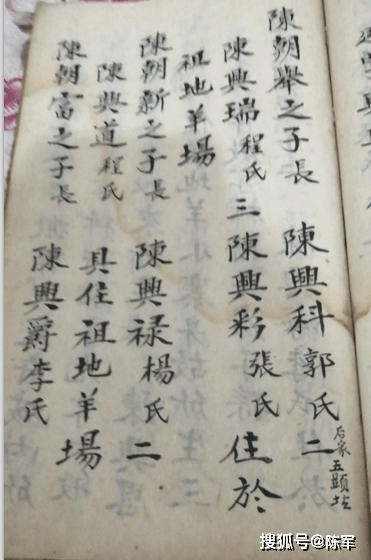 陳朝舉之子長 陳興科郭氏 二
后家五顯坛
陳興瑞程氏 三陳興彩張氏 住於
祖地羊場
陳朝新之子長 陳興禄楊氏 二
陳興道程氏 具住祖地羊場
陳朝富之子長 陳興爵李氏
搜狐号@陈军